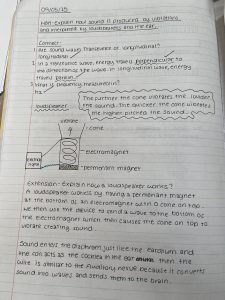 09/05/25
Aim: Explain how sound is produced by vibrations
and interpreted by loudspeakers and the ear.
Connect:
1) Are sound waves transverse or longitudinal?
longitudinal
2) In a transverse wave, energy travels perpendicular to
the direction of the wave. In longitudinal wave, energy
travels parallel.
3) What is frequency measured in?
Hz
loudspeaker:
The further the cone vibrates the louder
the sound. The quicker the cone vibrates
the higher pitched the sound.
vibrate
cone
electromagnet
permanent magnet
Extension: Explain how a loudspeaker works?
A loudspeaker works by having a permanent magnet
at the bottom of an electromagnet with a cone on top.
we then use the device to send a wave to the bottom of
the electromagnet which then causes the cone on top to
vibrate creating sound.
Sound enters the diaphragm just like the eardrum and
the coil acts as the cochlea in the ear then the
wire is similar to the auditory nerve because it converts
sound into waves and sends them to the brain.